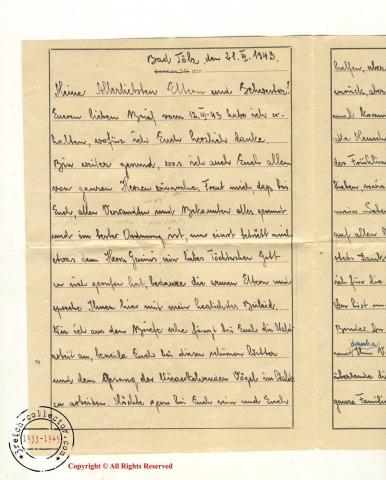 Bad Tölz den 21.III.1943.
Meine Allerliebsten Eltern und Schwester!
Euren lieben Brief vom 12.III-43 habe ich er-
halten, wofür ich Euch herzlich danke.
Bin weiter gesund, was ich auch Euch allen
von ganzen Herzen wünsche. Freut mich, das bei
Euch allen Verwandten und Bekannten alles gesund
und im bester Ordnung ist, nur einst betrübt mich
etwas dem Herrn ihr liebes Töchterchen Gott
zu sich gerufen hat, bedauere die armen Eltern und
spreche Ihnen hier mit mein herzlichstes Beileid.
Wie ich aus dem Briefe sehe fängt bei Euch die Feld-
arbeit an, Euch bei diesen schönen
und dem Gesang der Vögel im Felde
zu arbeiten. Möchte gern bei Euch sein und Euch
helfen, aber
zurück, aber
mal komm
die Mensch
der Frühlin
haben, wars
mein Leben
auf allen
ich für die
Bruder.
danke
ganze Familie
reich-collector.com
1933-1945
Copyright © All Rights Reserved